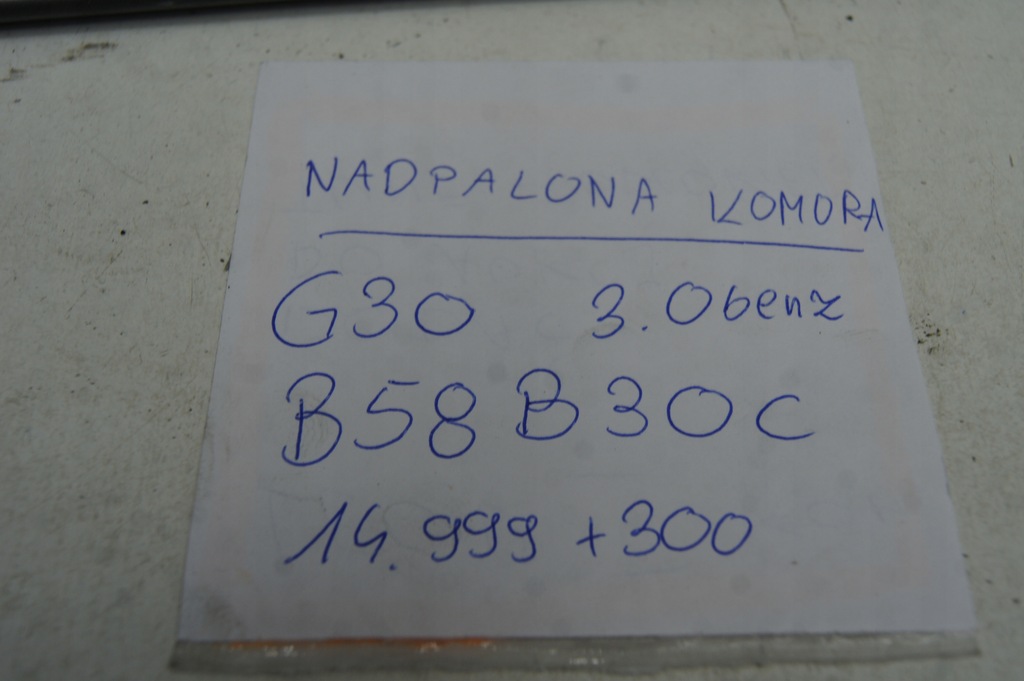 NADPALONA KOMORA
G30 3.0 benz
B58 B30C
14.999 + 300